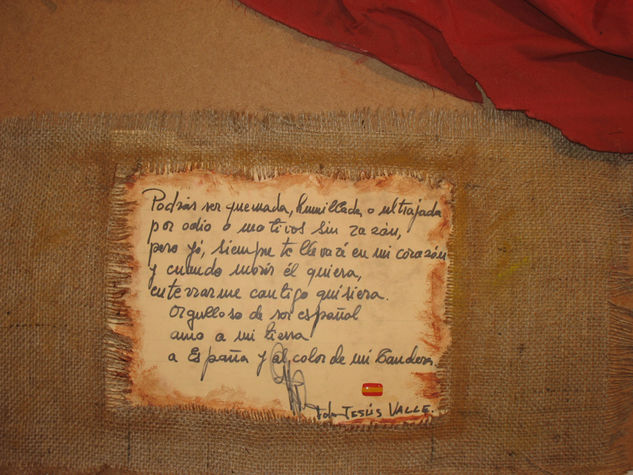 Podrás ser quemada, humillada o ultrajada
por odio o motivos sin razón,
pero yó, siempre te llevaré en mi corazón
y cuando morir él quiera,
enterrarme contigo quisiera.
Orgulloso de ser español
amo a mi tierra
a España y al color de mi Bandera.
Fdo. JESÚS VALLE.